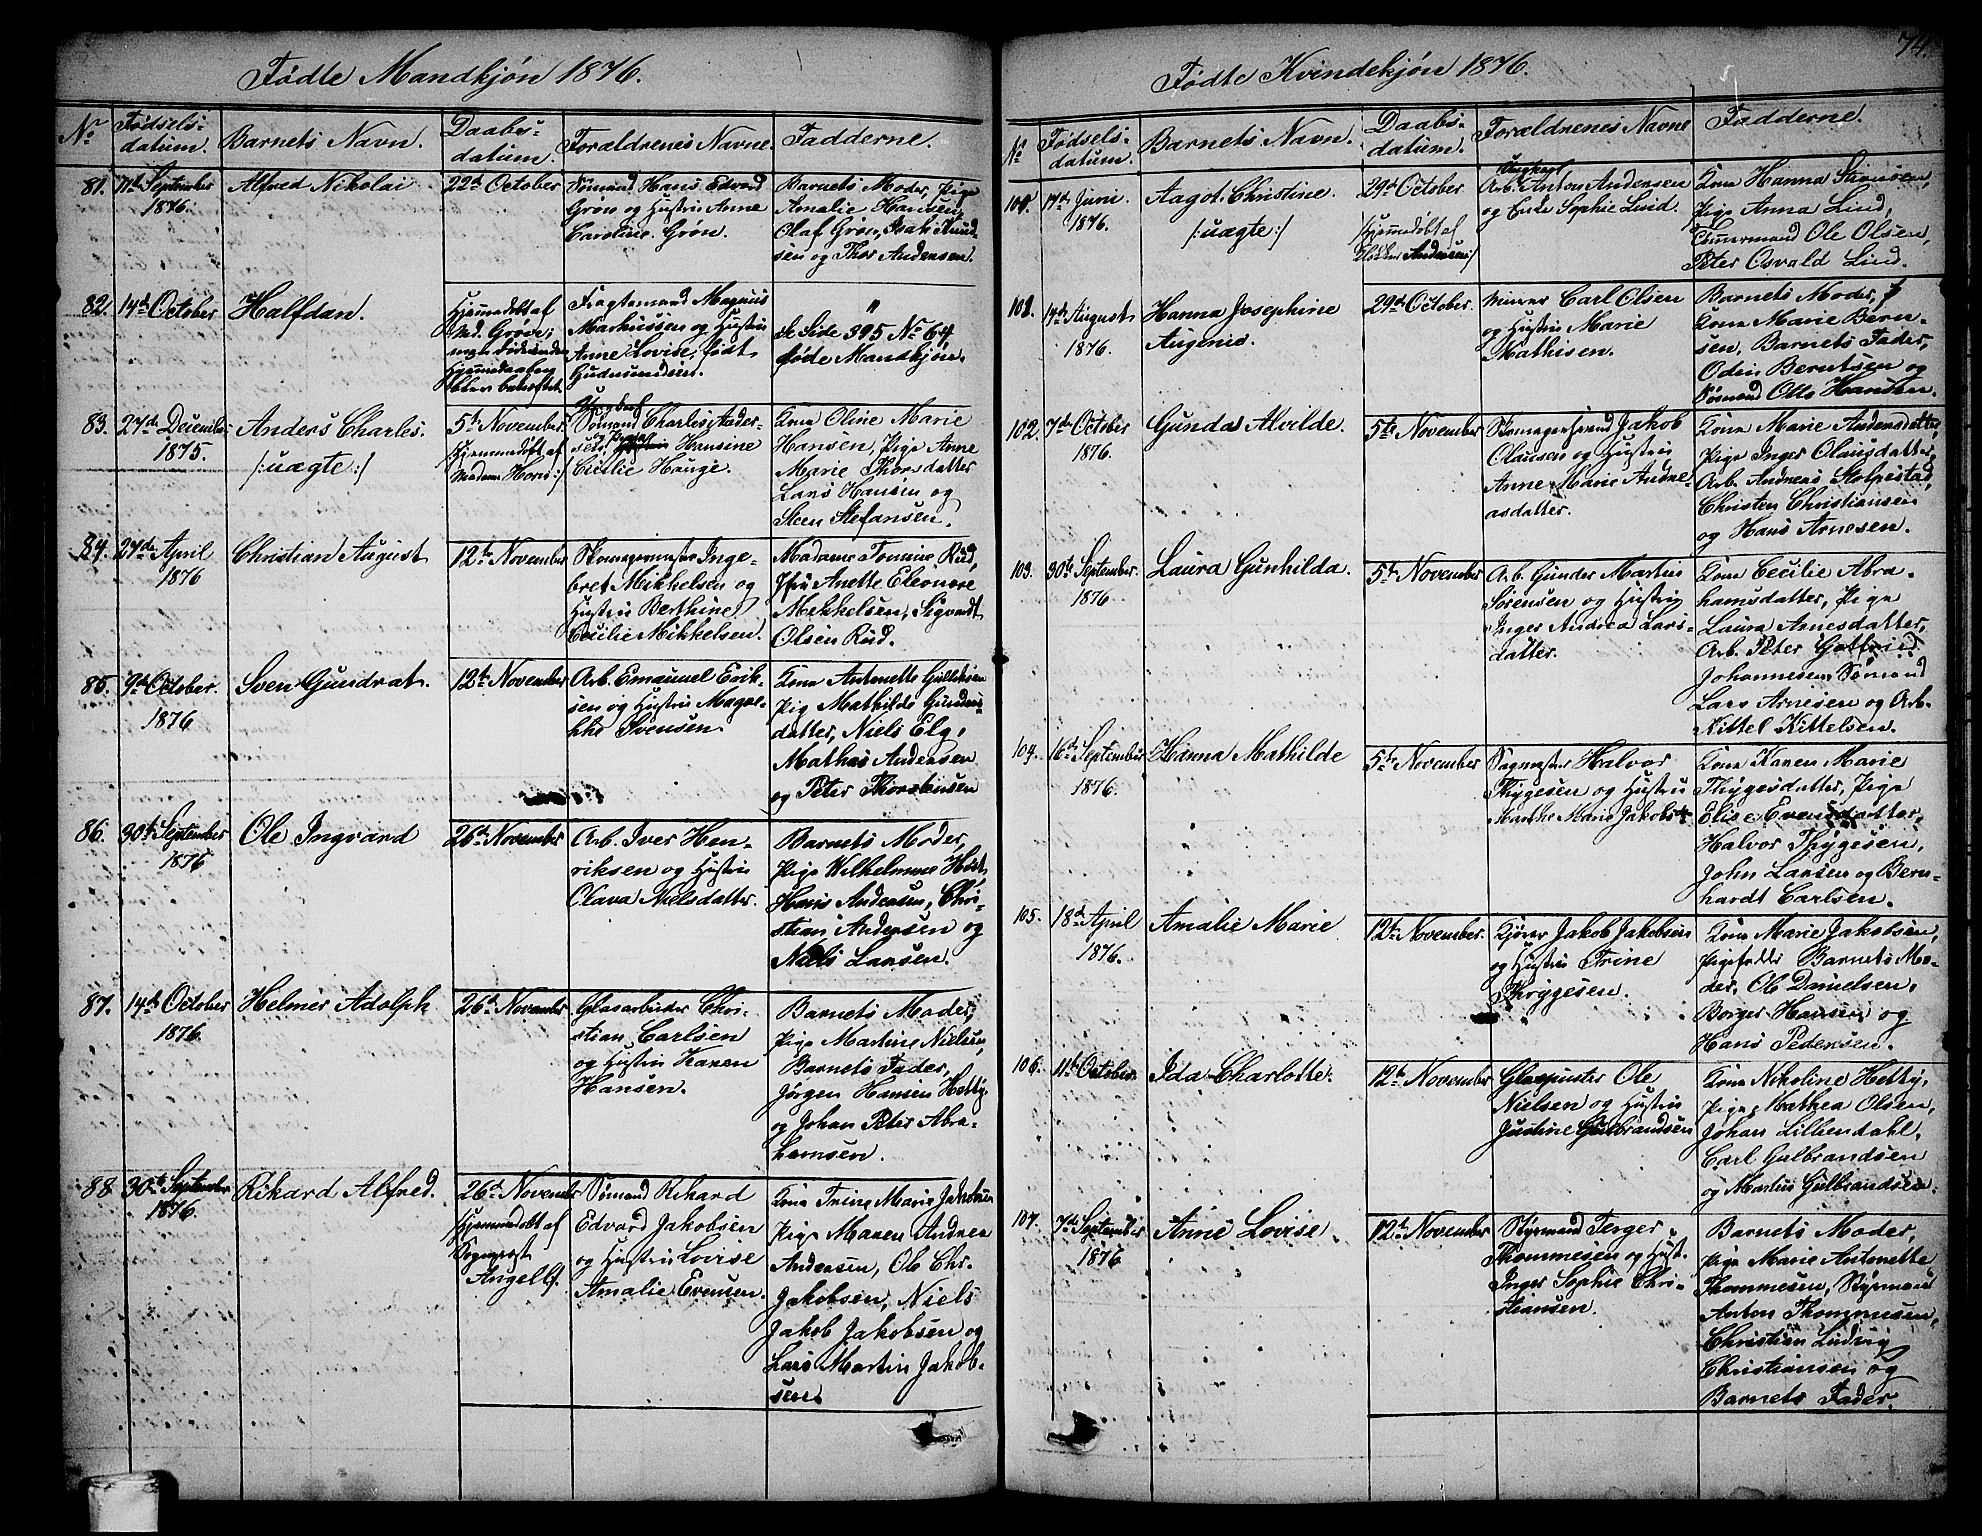 Fødte Mandkjøn 1876.
No
Fødsels-
datum.
Barnets Navn.
Daabs-
datum.
Forældrenes Navne.
Fadderne.
81.
11te September
1876.
Alfred Nikolai
22de October
Sømand Hans Edvard
Grøn og Hustru Anne
Caroline Grøn.
Barnets Moder, Pige
Amalie Hansen,
Olaf Grøn, Isak Knud-
sen og Thor Andersen.
82.
14de October
Halfdan.
Hjemmedøbt af
Md. Grøve;
Fragtemand Magnus
Markussen og Hustru
Anne Lovise, født
Gudmundsen.
"
se Side 395 No 64
føde Mandkjøn.
83.
27de December
1875.
Anders Charles.
/: uægte :/
5te November
/:Hjemmedøbt af
Madame Horn:/
Ungkarl
Sømand Charles Ander-
sen og Pige Hansine
Cicilie Hauge.
Kone Oline Marie
Hansen, Pige Anne
Marie Thorsdatter
Lars Hansen og
Steen Stefansen.
84.
27de April
1876
Christian August
12te November
Skomagermester Inge-
bret Mikkelsen og
Hustru Berthine
Cecilie Mikkelsen.
Madame Tomine Rud,
Jfru Anette Eleonore
Mikkelsen, Sigvardt
Olsen Rud.
85.
9de October.
1876
Sven Gundrat.
12te November
Arb. Emanuel Erik-
sen og Hustru Magre-
the Svensen.
Kone Antonette Gulliksen
Pige Mathilde Gunders-
datter, Niels Elg,
Mathias Andersen
og Peter Thorstensen
86.
30te September
1876
Ole Ingvard
26de November
Arb. Iver Hen-
riksen og Hustru
Olava Nielsdatter.
Barnets Moder,
Pige Wilhelmine Høst,
Hans Andersen, Chri-
stian Andersen og
Niels Larsen.
87.
14de October
1876.
Helmer Adolph
26de November
Glasarbeider Chri-
stian Carlsen
og Hustru Karen
Hansen.
Barnets Moder,
Pige Martine Nielsen,
Barnets Fader,
Jørgen Hansen Hetty,
og Johan Peter Abra-
hamsen.
88
30te September
1876.
Rikard Alfred.
26de November
/:Hjemmedøbt af
Sogneprest
Angell:/.
Sømand Rikard
Edvard Jakobsen
og Hustru Lovise
Amalie Evensen.
Kone Trine Marie Jakobsen
Pige Maren Andrea
Andersen, Ole Chr.
Jakobsen, Niels
Jakob Jakobsen og
Lars Martin Jakob-
sen.
74.
Fødte Kvindekjøn 1876.
No
Fødsels-
datum.
Barnets Navn.
Daabs-
datum.
Forældrenes Navne
Fadderne.
17de Juni.
1876.
Aagot Christine.
/: uægte :/
29de October
/:Hjemmedøbt af
Klokker Andersen:/
Ungkarl
Arb. Anton Andersen
og Enke Sophie Lind.
Kone Hanna Simonsen,
Pige Anna Lind,
Tømmermand Ole Olsen,
Peter Osvald Lind.
14de August
1876.
Hanna Josephine
Augenie.
29de October.
Murer Carl Olsen
og Hustru Marie
Mathisen.
Barnets Moder,
Kone Marie Bern-
sen, Barnets Fader,
Odin Berntsen og
Sømand Otto Hansen.
102.
7de October
1876.
Gunda Alvilde.
5te November
Skomagersvend Jakob
Olausen og Hustru
Anne Marie Andre-
asdatter.
Kone Marie Andersdatter,
Pige Inger Olausdatter,
Arb. Andreas Stolpestad,
Christen Christiansen
og Hans Arnesen.
103.
30te September.
1876.
Laura Gunhilda.
5te November
Arb. Gunder Martin
Sørensen og Hustru
Inger Andrea Lars-
datter.
Kone Cecilie Abra-
hamsdatter, Pige
Laura Arnesdatter,
Arb. Peter Gotfried
Johannesen, Sømand
Lars Arnesen og Arb.
Kittel Kittelsen.
104.
16de September
1876.
Hanna Mathilde
5te November
Sagmester Halvor
Thygesen og Hustru
Marthe Marie Jakobsdr
Kone Karen Marie
Thygesdatter, Pige
Elise Evensdatter,
Halvor Thygesen,
John Larsen og Bern-
hardt Carlsen.
105.
18de April
1876.
Amalie Marie
12te November.
Kjører Jakob Jakobsen
og Hustru Trine
Thrygesen.
Kone Marie Jakobsen,
Barnets Mo-
der, Ole Danielsen,
Borger Hansen og
Hans Pedersen.
106.
11te October.
Ida Charlotte.
12te November
Glaspuster Ole
Nielsen og Hustru
Justine Gulbrandsen
Kone Nikoline Hetty,
Pige Mathea Olsen,
Johan Lillendahl,
Carl Gulbrandsen
og Martin Gulbrandsen.
107.
7de September
1876
Anne Lovise.
12te November
Styrmand Terger
Thommesen og Hust.
Inger Sophie Chri-
stiansen.
Barnets Moder,
Pige Marie Antonette
Thommesen, Styrmand
Anton Thommesen,
Christian Ludvig
Christiansen og
Barnets Fader.